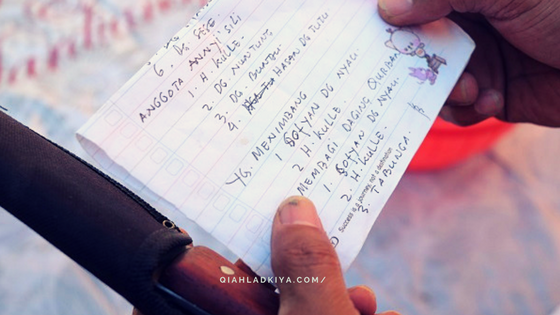 6. DG
ANGGOTA ANNY SILI
1. H. KULLE.
2 DG NUNTUNG
3. DG.
4 HASAN DG TUTU
YG. MENIMBANG
1 SOFYAN DG NYAU.
2 H. KULLE
MEMBAGI DAGING QURBAN
1. SOFYAN DG NYAU.
2. H. KULLE.
3. TABUNGA.
Success is a journey, not a destination
QIAHLADKIYA.COM/